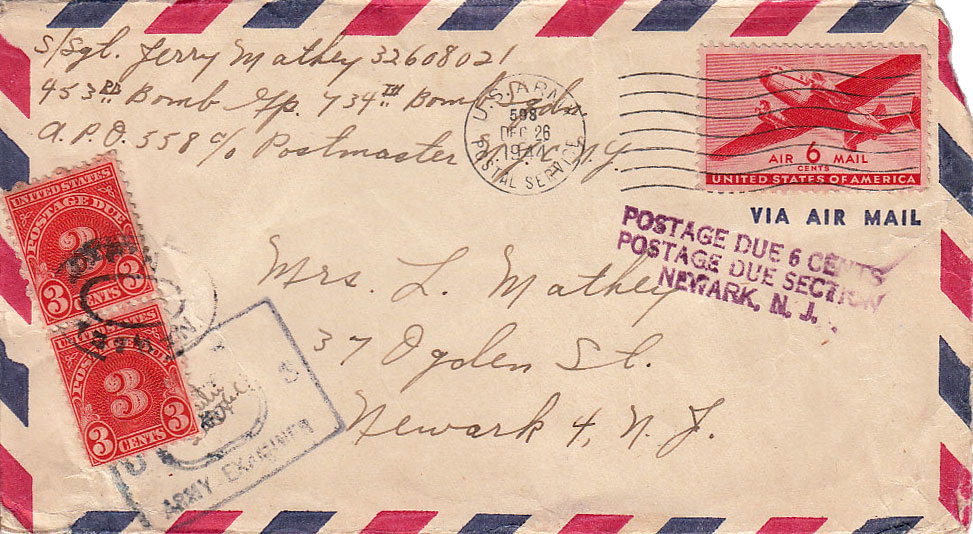 S/Sgt. Jerry Mathey 32608021
453RD Bomb Gp. 734TH Bomb
A.P.O. 558 c/o Postmaster N.Y.
U.S. ARMY
598
DEC 26
1944
POSTAL SERVICE
AIR 6 MAIL
CENTS
UNITED STATES OF AMERICA
VIA AIR MAIL
POSTAGE DUE 6 CENTS
POSTAGE DUE SECTION
NEWARK, N. J.
UNITED STATES
POSTAGE DUE
3
3 CENTS 3
UNITED STATES
POSTAGE DUE
3
3 CENTS 3
Mrs. L. Mathey
37 Ogden St.
Newark 4, N. J.
ARMY EXAMINER